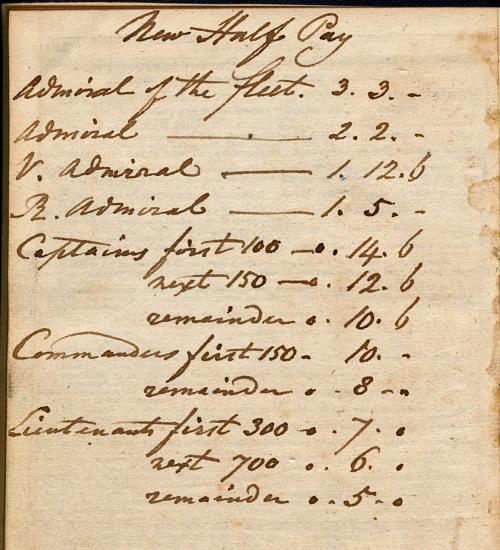 New Half Pay
Admiral of the fleet. 3. 3. -
Admiral —— 2. 2. -
V. Admiral —— 1. 12. 6
R. Admiral —— 1. 5. -
Captains first 100 — 0. 14. 6
next 150 — 0. 12. 6
remainder 0. 10. 6
Commanders first 150 - 10. -
remainder 0 - 8 - -
Lieutenants first 300 - 0. 7. 0
next 700 0. 6. 0
remainder 0. 5. 0